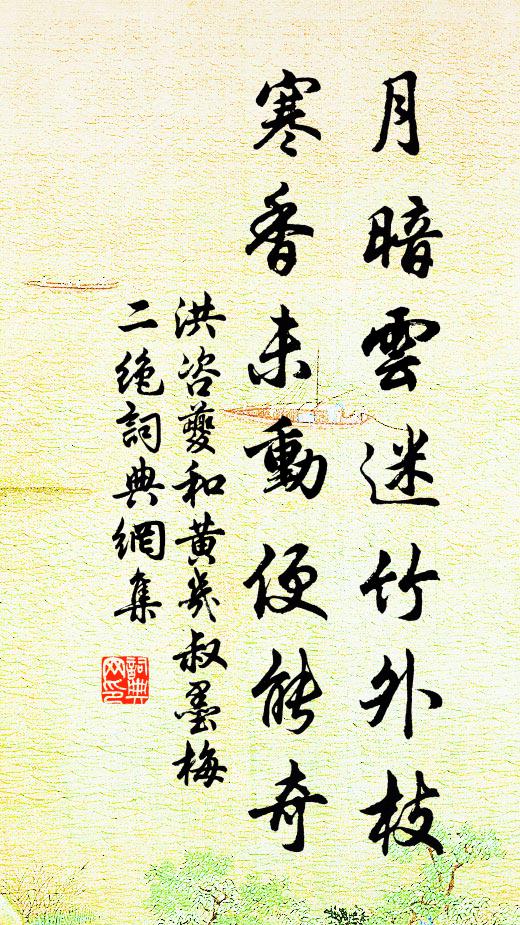 月暗雲迷竹外枝
寒香未動便能奇
洪咨夔和黄幾叔墨梅
二絶詞典網集
詞典
网印